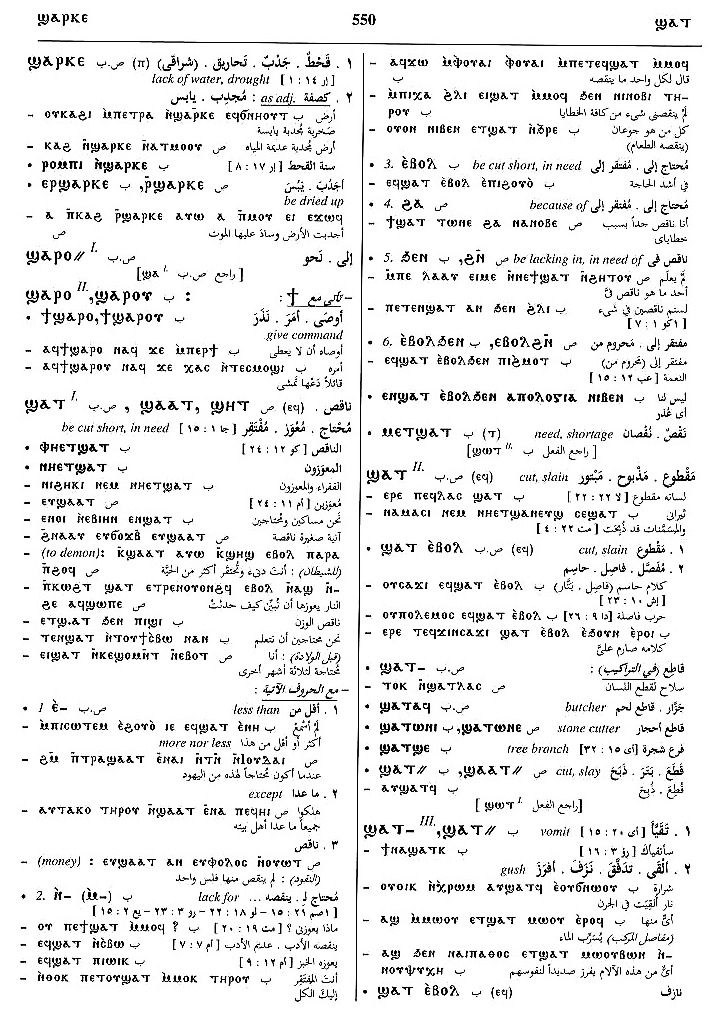 ϣⲁⲣⲕⲉ 550 ϣⲁⲧ
ϣⲁⲣⲕⲉ ص.ب (π) ١ . قَحْطٌ . جَدْبٌ . تحاريق . (شراقى)
lack of water, drought [إر ١٤ : ١]
٢ . كصفة as adj. : مُجدِب . يابس
– ⲟⲩⲕⲁϩⲓ ⲙ̀ⲡⲉⲧⲣⲁ ⲛ̀ϣⲁⲣⲕⲉ ب أرض
صَخرية مُجدبة يابسة
– ⲕⲁϩ ⲛ̀ϣⲁⲣⲕⲉ ⲛ̀ⲁⲧⲙⲟⲟⲩ ص أرض مُجدبة عديمة المياه
• ⲣⲟⲙⲡⲓ ⲛ̀ϣⲁⲣⲕⲉ ب سنة القحط [إر ١٧ : ٨]
• ⲉⲣϣⲁⲣⲕⲉ ب ,ⲣ̄ϣⲁⲣⲕⲉ ص أجدَبَ . يَبُسَ
be dried up
– ⲁ ⲡⲕⲁϩ ⲣ̄ϣⲁⲣⲕⲉ ⲁⲩⲱ ⲁ ⲡⲙⲟⲩ ⲉⲓ ⲉϫⲱϥ
ص أجدبت الأرض وسادَ عليها الموت
ϣⲁⲣⲟ// I. ص.ب إلى . نَحْوَ
[ϣⲁ I. راجع ص.ب]
ϣⲁⲣⲟ II. ,ϣⲁⲣⲟⲩ ب : – تأتى مع ϯ :
• ϯϣⲁⲣⲟ,ϯϣⲁⲣⲟⲩ ب أوصَى . أمَرَ . نَذَرَ
give command
– ⲁϥϯϣⲁⲣⲟ ⲛⲁϥ ϫⲉ ⲙ̀ⲡⲉⲣϯ ب أوصاه أن لا يعطى
– ⲁϥϯϣⲁⲣⲟⲩ ⲛⲁϥ ϫⲉ ⲭⲁⲥ ⲛ̀ⲧⲉⲥⲙⲟϣⲓ ب أمره
قائلاً دَعْها تَمْشى
ϣⲁⲧ I. ص.ب , ϣⲁⲁⲧ, ϣⲏⲧ ص (eq) ناقص .
be cut short, in need [جا ١ : ١٥] مُحتاج . مُعْوَز . مُفْتَقِر
• ⲫⲏⲉⲧϣⲁⲧ ب الناقص [كو ١٢ : ٢٤]
• ⲛⲏⲉⲧϣⲁⲧ ب المعوَزون
– ⲛⲓϩⲏⲕⲓ ⲛⲉⲙ ⲛⲏⲉⲧϣⲁⲧ ب الفقراء والمعوزون
– ⲉⲧϣⲁⲁⲧ ص مُعوَزين [أم ١١ : ٢٤]
– ⲉⲛⲟⲓ ⲛ̀ⲉⲃⲓⲏⲛ ⲉⲛϣⲁⲧ ب نحن مساكين ومُحتاجين
– ϩⲛⲁⲁⲩ ⲉⲧϭⲟϫⲃ ⲉⲧϣⲁⲁⲧ ص آنية صغيرة ناقصة
– (to demon): ⲕ̄ϣⲁⲁⲧ ⲁⲩⲱ ⲕ̄ϣⲏϣ ⲉⲃⲟⲗ ⲡⲁⲣⲁ
ⲡϩⲟϥ ص (للشيطان): أنتَ دنىء ومُحتقَر أكثر من الحيَّة
– ⲡⲕⲱϩⲧ ϣⲁⲧ ⲉⲧⲣⲉⲛⲟⲩⲟⲛϩϥ ⲉⲃⲟⲗ ⲛ̄ⲁϣ ⲛ̄–
ϩⲉ ⲁϥϣⲱⲡⲉ ص النار يعوزها أن تُبَيِّن كيف حدثت
– ⲉⲧϣ.ⲁⲧ ϧⲉⲛ ⲡⲓϣⲓ ب ناقص الوزن
– ⲧⲉⲛϣⲁⲧ ⲛ̀ⲧⲟⲩϯⲥⲃⲱ ⲛⲁⲛ ب نحن مُحتاجين أن نتعلم
– ⲉⲓϣⲁⲧ ⲛ̄ⲕⲉϣⲟⲙⲛ̄ⲧ ⲛ̄ⲉⲃⲟⲧ ص (قبل الولادة) : أنا
مُحتاجة لثلاثة أشهر أخرى
– مع الحروف الآتية :
• 1 ⲉ̀– ص.ب less than ١ . أقل من
– ⲙ̀ⲡⲓⲥⲱⲧⲉⲙ ⲉ̀ϩⲟⲩⲟ̀ ⲓⲉ ⲉϥϣⲁⲧ ⲉ̀ⲛⲏ ب لَم أسْمَعْ
more nor less أكثر أو أقل من هذا
– ϩⲙ̄ ⲡⲧⲣⲁϣⲁⲁⲧ ⲉⲛⲁⲓ ⲛ̄ⲧⲛ̄ ⲛ̄ⲓⲟⲩⲇⲁⲓ ص
عندما أكون مُحتاجاً لهذه من اليهود
except ٢ . ما عدا
– ⲁⲩⲧⲁⲕⲟ ⲧⲏⲣⲟⲩ ⲛ̄ϣⲁⲁⲧ ⲉⲛⲁ ⲡⲉϥⲏⲓ ص هلكوا
جميعاً ما عدا أهل بيته
٣ . ناقص
– (money) : ⲉⲩϣⲁⲁⲧ ⲁⲛ ⲉⲩⲫⲟⲗⲟⲥ ⲛ̄ⲟⲩⲱⲧ ص
(النقود) : لم ينقص منها فلس واحد
• 2. ⲛ̀– (ⲙ̀–) ب lack for ... مُحتاج لـ . ينقصه
[١صم ٢١ : ١٥ – لو ١٨ : ٢٢ – رو ٣ : ٢٣ – يع ٢ : ١٥]
– ⲟⲩ ⲡⲉϯϣⲁⲧ ⲙ̀ⲙⲟϥ ? ب ماذا يعوزنى ؟ [مت ١٩ : ٢٠]
– ⲉϥϣⲁⲧ ⲛ̀ⲥⲃⲱ ب ينقصه الأدب . عديم الأدب [أم ٧ : ٧]
– ⲉϥϣⲁⲧ ⲡⲓⲱⲓⲕ ب يعوزه الخبز [أم ١٢ : ٩]
– ⲛ̀ⲑⲟⲕ ⲡⲉⲧⲟⲩϣⲁⲧ ⲙ̀ⲙⲟⲕ ⲧⲏⲣⲟⲩ ب أنتَ المُفتَقِر
إليك الكل
– ⲁϥϫⲱ ⲙ̀ⲫⲟⲩⲁⲓ ⲫⲟⲩⲁⲓ ⲙ̀ⲡⲉⲧⲉϥϣⲁⲧ ⲙ̀ⲙⲟϥ
ب قال لكل واحد ما ينقصه
– ⲙ̀ⲡⲓⲭⲁ ϩ̀ⲗⲓ ⲉⲓϣⲁⲧ ⲙ̀ⲙⲟϥ ϧⲉⲛ ⲛⲓⲛⲟⲃⲓ ⲧⲏ–
ⲣⲟⲩ ب لم ينقصنى شىء من كافة الخطايا
– ⲟⲩⲟⲛ ⲛⲓⲃⲉⲛ ⲉⲧϣⲁⲧ ⲛ̀ϧ̀ⲣⲉ ب كل من هو جوعان
(ينقصه الطعام)
• 3. ⲉ̀ⲃⲟⲗ ب be cut short, in need مُحتاج إلى . مُفتقر إلى
– ⲉϥϣⲁⲧ ⲉ̀ⲃⲟⲗ ⲉ̀ⲡⲓϩⲟⲩⲟ̀ ب فى أشد الحاجة
• 4. ϩⲁ ص because of مُحتاج إلى . مُفتقر إلى
– ϯϣⲁⲧ ⲧⲱⲛⲉ ϩⲁ ⲛⲁⲛⲟⲃⲉ ص أنا ناقص جداً بسبب
خطاياى
• 5. ϧⲉⲛ ب ,ϩⲛ̄ ص be lacking in, in need of ناقص فى
– ⲙ̄ⲡⲉ ⲗⲁⲁⲩ ⲉⲓⲙⲉ ⲛ̄ⲛⲉϯϣⲁⲧ ⲛ̄ϩⲏⲧⲟⲩ ص لَم يعلم
أحد ما هو ناقص فىَّ
– ⲡⲉⲧⲉⲛϣⲁⲧ ⲁⲛ ϧⲉⲛ ϩ̀ⲗⲓ ب لستم ناقصين فى شىء
[١كو ١ : ٧]
• 6. ⲉ̀ⲃⲟⲗϧⲉⲛ ب ,ⲉⲃⲟⲗϩⲛ̄ ص مفتقر إلى . مَحروم من
– ⲉϥϣⲁⲧ ⲉ̀ⲃⲟⲗϧⲉⲛ ⲡⲓϩ̀ⲙⲟⲧ ب مفتقر إلى (مَحروم من)
النعمة [عب ١٢ : ١٥]
• ⲉⲛϣⲁⲧ ⲉ̀ⲃⲟⲗϧⲉⲛ ⲁⲡⲟⲗⲟⲅⲓⲁ ⲛⲓⲃⲉⲛ ب ليس لنا
أى عُذر
• ⲙⲉⲧϣⲁⲧ ب (ⲧ) need, shortage نَقْصٌ . نُقْصَان
[ϣⲱⲧ II. راجع الفعل ب]
ϣⲁⲧ II. ص.ب (eq) cut, slain مَقْطوع . مَذْبوح . مَبْتور
– ⲉⲣⲉ ⲡⲉϥⲗⲁⲥ ϣⲁⲧ ب لسانه مقطوع [لا ٢٢ : ٢٢]
– ⲛⲁⲙⲁⲥⲓ ⲛⲉⲙ ⲛⲏⲉⲧϣⲁⲛⲉⲩϣ ⲥⲉϣⲁⲧ ب ثيرانى
والمُسَمَّنات قد ذُبِحَت [مت ٢٢ : ٤]
• ϣⲁⲧ ⲉ̀ⲃⲟⲗ ص.ب (eq) cut, slain ١ . مَقْطوع
٢ . مُفَصَّل . فاصِل . حاسِم
– ⲟⲩⲥⲁϫⲓ ⲉϥϣⲁⲧ ⲉ̀ⲃⲟⲗ ب كلام حاسم (فاصل . بَتَّار)
[إش ١٠ : ٢٣]
– ⲟⲩⲡⲟⲗⲉⲙⲟⲥ ⲉϥϣⲁⲧ ⲉ̀ⲃⲟⲗ ب حرب فاصلة [دا ٩ : ٢٦]
– ⲉⲣⲉ ⲧⲉϥϫⲓⲛⲥⲁϫⲓ ϣⲁⲧ ⲉ̀ⲃⲟⲗ ⲉ̀ϧⲟⲩⲛ ⲉ̀ⲣⲟⲓ ب
كلامه صارم علىَّ
• ϣⲁⲧ– ص.ب قاطع (فى التراكيب) :
– ⲧⲟⲕ ⲛ̄ϣⲁⲧⲗⲁⲥ ص سلاح لقطع اللسان
• ϣⲁⲧⲁϥ ص.ب butcher جَزَّار . قاطع لحم
• ϣⲁⲧⲱⲛⲓ ب ,ϣⲁⲧⲱⲛⲉ ص stone cutter قاطع أحجار
• ϣⲁⲧϣⲉ ب tree branch [أى ١٥ : ٣٢] فرع شجرة
• ϣⲁⲧ// ب ,ϣⲁⲁⲧ// ص cut, slay قَطَعَ . بَتَرَ . ذَبَحَ
– ⲁⲩϣⲁⲧϥ ب قُطِعَ . ذُبِحَ
[ϣⲱⲧ I. راجع الفعل ص.ب]
ϣⲁⲧ– III. ,ϣⲁⲧ// ب vomit [أى ٢٠ : ١٥] ١ . تَقَيَّأ
– ϯⲛⲁϣⲁⲧⲕ ب سأتقيأك [رؤ ٣ : ١٦]
gush ٢ . ألْقَى . تدفَّقَ . نَزَفَ . أفرَزَ
– ⲟⲩⲟⲓⲕ ⲛ̀ⲭⲣⲱⲙ ⲁⲩϣⲁⲧϥ ⲉ̀ⲟⲩϭⲛⲱⲟⲩ ب شرارة
نار أُلقِيَت فى الجرن
– ⲁϣ ⲙ̀ⲙⲱⲟⲩ ⲉⲧϣⲁⲧ ⲙⲱⲟⲩ ⲉⲣⲟϥ ب أىٌّ منها
(مفاصل المركب) يُسَرِّب الماء
– ⲁϣ ϧⲉⲛ ⲛⲁⲓⲡⲁⲑⲟⲥ ⲉⲧϣⲁⲧ ⲙⲱⲟⲩⲃⲱⲛ ⲛ̀–
ⲛⲟⲩⲯⲩⲭⲏ ب أىٌّ من هذه الآلام يفرز صديداً لنفوسهم
• ϣⲁⲧ ⲉ̀ⲃⲟⲗ ب (eq) نازف